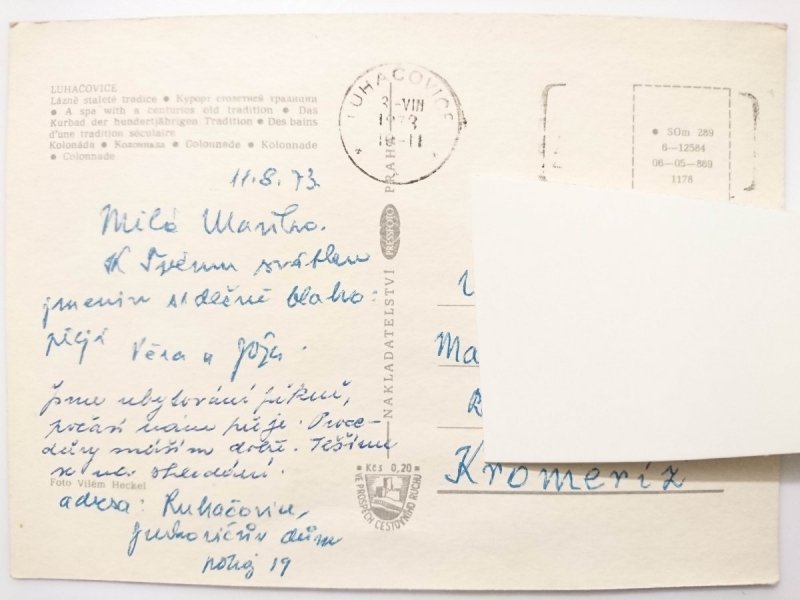 LUHAČOVICE
Lázně staleté tradice ● Курорт столетней традиции
● A spa with a centuries old tradition ● Das
Kurbad der hundertjährigen Tradition ● Des bains
d'une tradition séculaire
Kolonáda ● Колоннада ● Colonnade ● Kolonnade
● Colonnade
11.8.73.
Milá
K Tvému svátku
jmenin srdečně blaho
přejí
Věra a Jóža.
Jsme ubytováni pěkně,
počasí nám přeje. Proce-
dury snáším dobře. Těšíme
se na shledání.
Foto Vilém Heckel
adresa: Luhačovice,
Jurkovičův dům
pokoj 19
LUHAČOVICE
-VIII
1973
-11
NAKLADATELSTVÍ PRESSFOTO PRAHA
Kčs 0,20
VE PROSPĚCH CESTOVNÍHO RUCHU
● SOm 289
6-12584
06-05-869
1178
Ma
Kromeriz